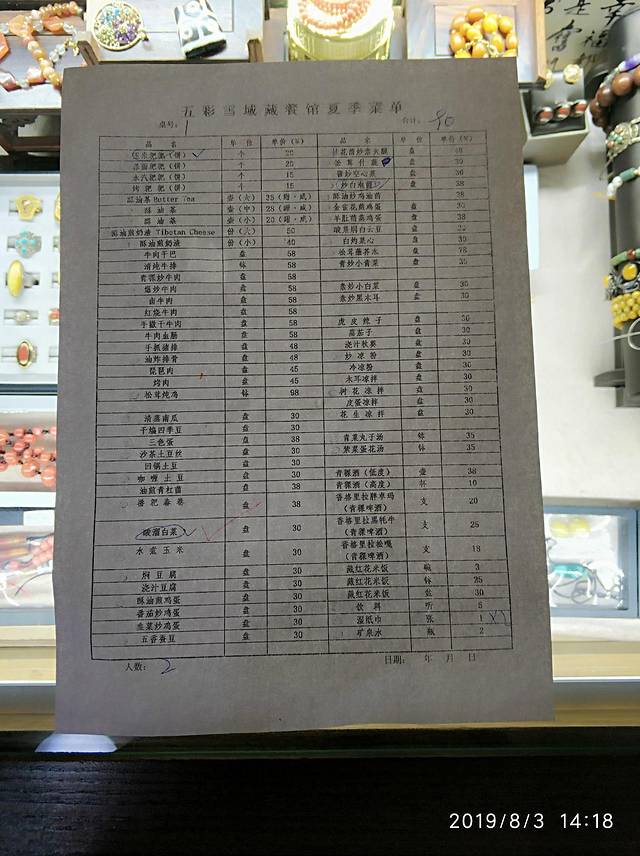 五彩雪域藏餐馆夏季菜单
桌号: 1 合计: 90
品 名 单 位 单价（元） 品 名 单 位 单价（元）
粑粑（饼） 个
粑粑（饼） 个 20
水汽粑粑（饼） 个 15
烤粑粑（饼） 个 15
酥油茶 Butter Tea 壶（大） 35（甜・咸）
酥油茶 壶（中） 28（甜・咸）
酥油茶 壶（小） 20（甜・咸）
酥油煎奶渣 Tibetan Cheese 份（大） 50
酥油煎奶渣 份（小） 40
牛肉干巴 盘 58
清炖牛排 钵 58
青稞炒牛肉 盘 58
爆炒牛肉 盘 58
卤牛肉 盘 58
红烧牛肉 盘 58
手撕干牛肉 盘 58
牛肉血肠 盘 58
手抓猪排 盘 48
油炸排骨 盘 48
琵琶肉 盘 45
烤肉 盘 45
松茸炖鸡 钵 98
清蒸南瓜 盘 30
干煸四季豆 盘 30
三色蛋 盘 38
沙茶土豆丝 盘 30
回锅土豆 盘 30
咖喱土豆 盘 30
油煎青杠菌 盘 38
盘 38
醋溜白菜 盘 30
水煮玉米 盘 30
焖豆腐 盘 30
浇汁豆腐 盘 30
酥油煎鸡蛋 盘 30
番茄炒鸡蛋 盘 30
韭菜炒鸡蛋 盘 30
五香蚕豆 盘 30
盘
盘 30
盘 30
盘 38
盘
盘 30
羊肚菌蒸鸡蛋 盘 38
盘
白灼菜心 盘 30
松茸蘸芥末 盘 78
青炒小青菜 盘 35
素炒小白菜 盘 30
素炒黑木耳 盘 30
虎皮辣子 盘 30
茄子 盘 30
浇汁秋葵 盘 30
炒凉粉 盘 30
冷凉粉 盘 30
木耳凉拌 盘 30
树花凉拌 盘 30
皮蛋凉拌 盘 30
花生凉拌 盘 30
青菜丸子汤 钵 35
紫菜蛋花汤 钵 35
青稞酒（低度） 壶 38
青稞酒（高度） 杯 10
香格里拉胖卓玛（青稞啤酒） 支 20
香格里拉黑牦牛（青稞啤酒） 支 25
香格里拉松嘎（青稞啤酒） 支 18
藏红花米饭 碗 3
藏红花米饭 钵 25
藏红花米饭 盆 30
饮料 听 5
湿纸巾 张 1
矿泉水 瓶 2
人数: 2 日期: 年 月 日
2019/8/3 14:18